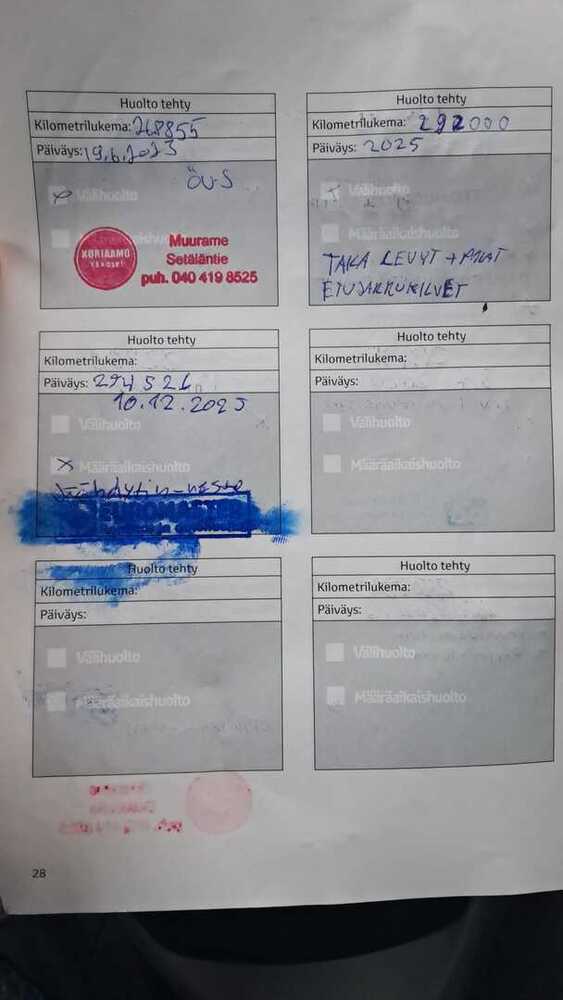 Huolto tehty
Kilometrilukema: 268855
Päiväys: 19.6.2023
ÖV-S
Välihuolto
KORJAAMO
Muurame
Setäläntie
puh. 040 419 8525
Huolto tehty
Kilometrilukema: 292000
Päiväys: 2025
Välihuolto
Määräaikaishuolto
TAKA LEVYT + PALAT
ETUJARRUKILVET
Huolto tehty
Kilometrilukema:
Päiväys: 294521
10.12.2025
Välihuolto
X Määräaikaishuolto
Jäähdytin-neste
EUROMASTER
Huolto tehty
Kilometrilukema:
Päiväys:
Välihuolto
Määräaikaishuolto
Huolto tehty
Kilometrilukema:
Päiväys:
Välihuolto
Määräaikaishuolto
Huolto tehty
Kilometrilukema:
Päiväys:
Välihuolto
Määräaikaishuolto
28